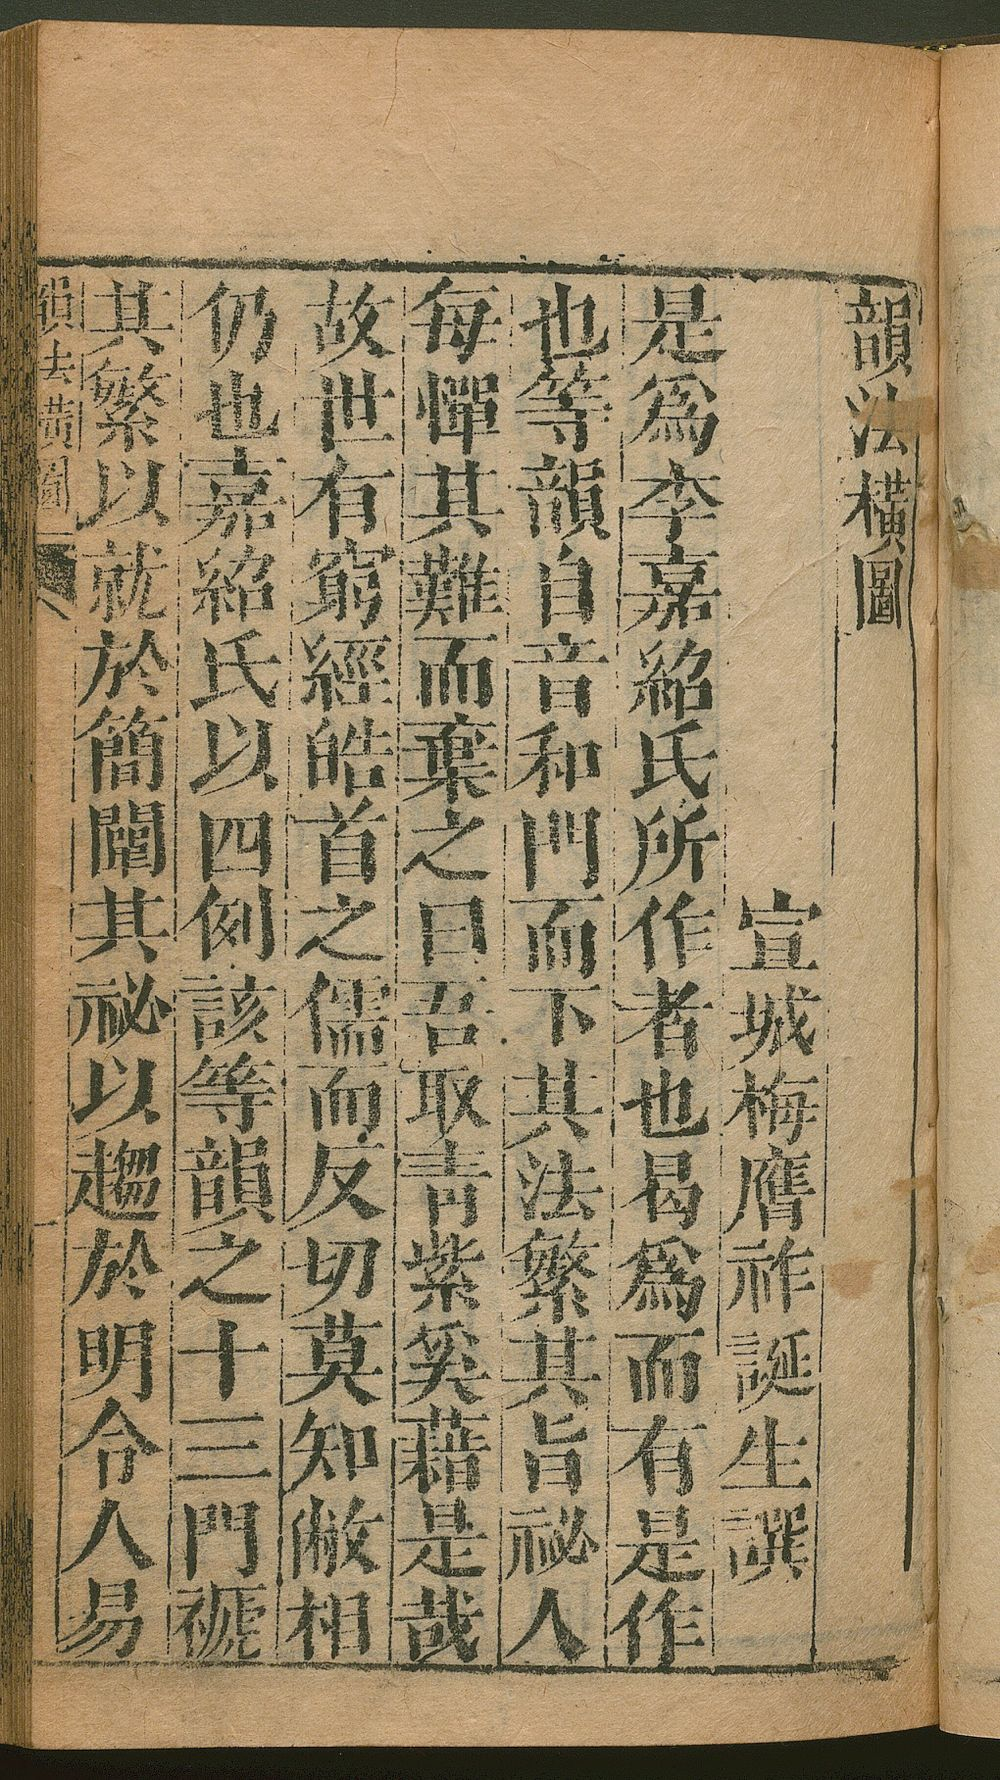 韻法橫圖
宣城梅膺祚誕生譔
是爲李嘉紹氏所作者也曷爲而有是作
也等韻自音和門而下其法繁其旨祕人
每憚其難而棄之曰吾取青紫奚藉是哉
故世有窮經皓首之儒而反切莫知敝相
仍也嘉紹氏以四例該等韻之十三門褫
其繁以就於簡闡其祕以趨於明令人易
韻法橫圖
一